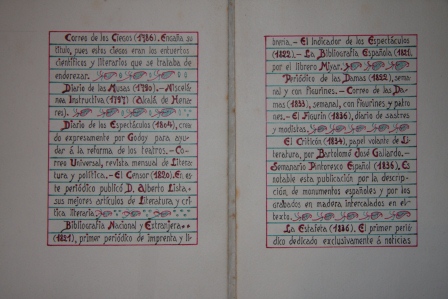 Correo de los Ciegos (1786). Ensaña su
título, pues estos ciegos eran los entuertos
científicos y literarios que se trataba de
enderezar.
Diario de las Musas (1790).- Miscelá-
nea Instructiva (1797) (Alcalá de Hena-
res).
Diario de los Espectáculos (1804), crea-
do expresamente por Godoy para ayu-
dar á la reforma de los teatros.- Co-
rreo Universal, revista mensual de Litera-
tura y política.- El Censor (1820). En es-
te periódico publicó D. Alberto Lista
sus mejores artículos de Literatura y crí-
tica literaria.
Bibliografía Nacional y Estranjera
(1821), primer periódico de imprenta y li-
brería.- El Indicador de los Espectáculos
(1822).- La Bibliografía Española (1821),
por el librero Miyar.
Periódico de las Damas (1822), sema-
nal y con figurines.- Correo de las Da-
mas (1833), semanal, con figurines y patro-
nes.- El Figurín (1836), diario de sastres
y modistas.
El Criticón (1834), papel volante de Li-
teratura, por Bartolomé José Gallardo.-
Semanario Pintoresco Español (1836). Es
notable esta publicación por la descrip-
ción de monumentos españoles y por los
grabados en madera intercalados en el
texto.
La Estafeta (1836). El primer perió-
dico dedicado exclusivamente á noticias